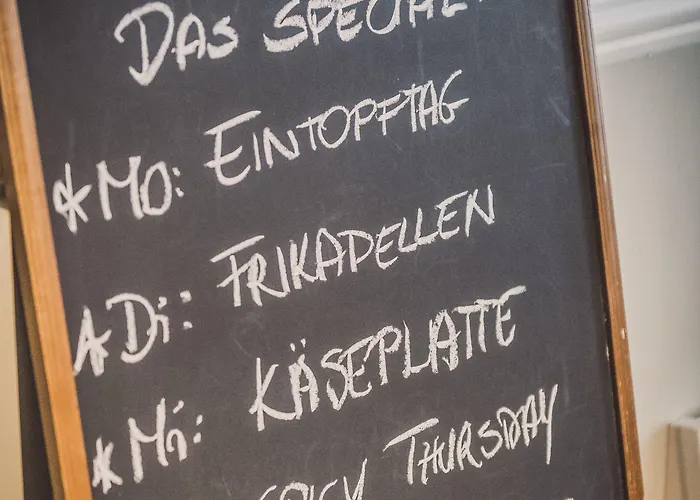 DAS SPECIAL
*MO: EINTOPFTAG
*Di: FRIKADELLEN
*Mi: KÄSEPLATTE
SPICY THURSDAY